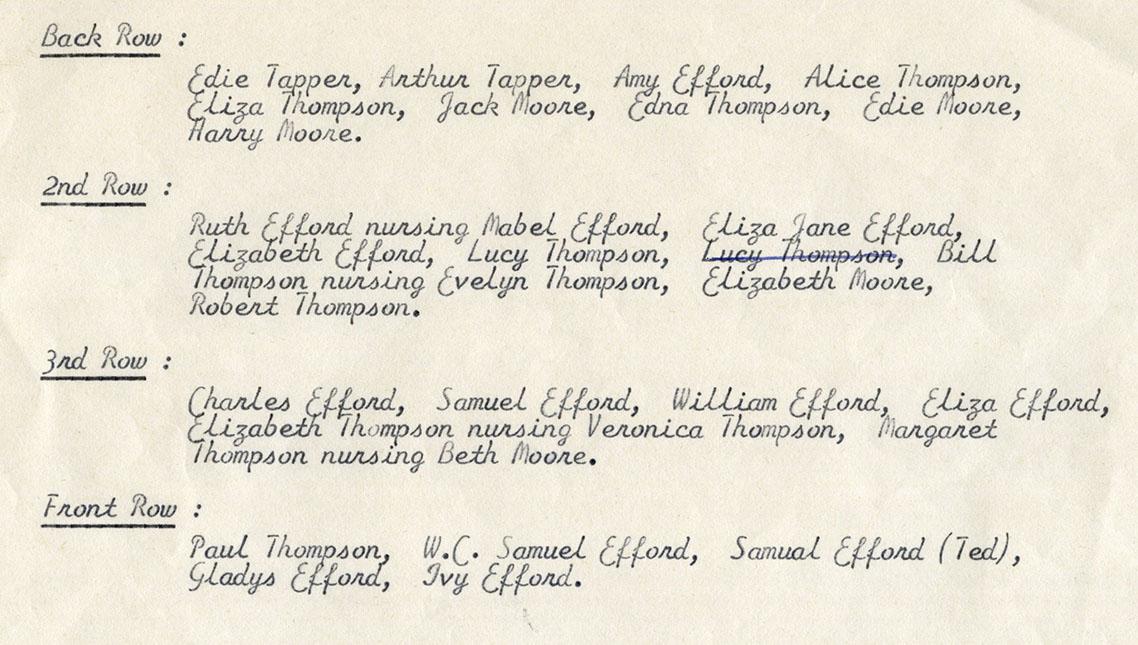 Back Row :
Edie Tapper, Arthur Tapper, Amy Efford, Alice Thompson,
Eliza Thompson, Jack Moore, Edna Thompson, Edie Moore,
Harry Moore.
2nd Row :
Ruth Efford nursing Mabel Efford, Eliza Jane Efford,
Elizabeth Efford, Lucy Thompson, Lucy Thompson, Bill
Thompson nursing Evelyn Thompson, Elizabeth Moore,
Robert Thompson.
3nd Row :
Charles Efford, Samuel Efford, William Efford, Eliza Efford,
Elizabeth Thompson nursing Veronica Thompson, Margaret
Thompson nursing Beth Moore.
Front Row :
Paul Thompson, W.C. Samuel Efford, Samual Efford (Ted),
Gladys Efford, Ivy Efford.